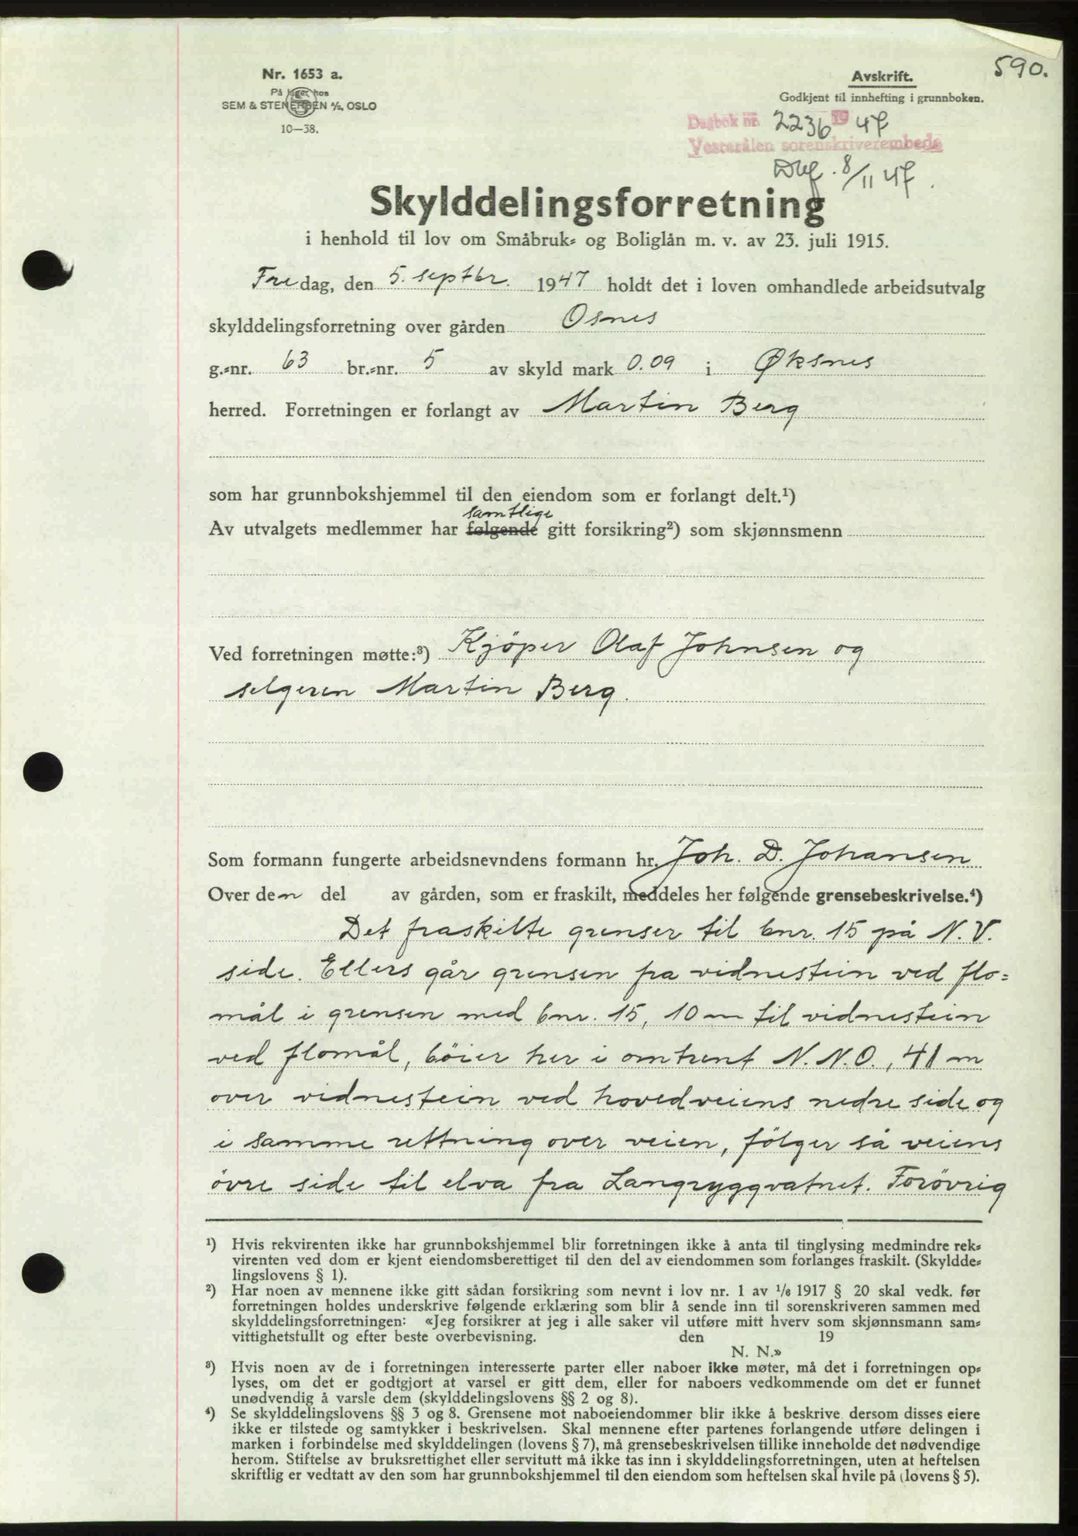 590.
Nr. 1653 a.
På lager hos
SEM & STENERSEN A/S, OSLO
10—38.
Avskrift.
Godkjent til innhefting i grunnboken.
Dagbok nr. 2236 19 47
Vesterålen sorenskriverembede
Dbf. 8/11 47.
Skylddelingsforretning
i henhold til lov om Småbruk- og Boliglån m. v. av 23. juli 1915.
Fredag, den 5. septbr. 1947 holdt det i loven omhandlede arbeidsutvalg
skylddelingsforretning over gården Osnes
g.-nr. 63 br.-nr. 5 av skyld mark 0.09 i Øksnes
herred. Forretningen er forlangt av Martin Berg
som har grunnbokshjemmel til den eiendom som er forlangt delt.¹)
samtlige
Av utvalgets medlemmer har følgende gitt forsikring²) som skjønnsmenn
Ved forretningen møtte:³) Kjöper Olaf Johnsen og
selgeren Martin Berg.
Som formann fungerte arbeidsnevndens formann hr. Joh. D. Johansen
Over den del av gården, som er fraskilt, meddeles her følgende grensebeskrivelse.⁴)
Det fraskilte grenser til bnr. 15 på N.V.
side. Ellers går grensen fra vidnestein ved flo=
mål i grensen med bnr. 15, 10 m til vidnestein
ved flomål, böier her i omtrent N.N.O., 41 m
over vidnestein ved hovedveiens nedre side og
i samme rettning over veien, fölger så veiens
övre side til elva fra Langryggvatnet. Forövrig
¹) Hvis rekvirenten ikke har grunnbokshjemmel blir forretningen ikke å anta til tinglysing medmindre rek-
virenten ved dom er kjent eiendomsberettiget til den del av eiendommen som forlanges fraskilt. (Skyldde-
lingslovens § 1).
²) Har noen av mennene ikke gitt sådan forsikring som nevnt i lov nr. 1 av 1/6 1917 § 20 skal vedk. før
forretningen holdes underskrive følgende erklæring som blir å sende inn til sorenskriveren sammen med
skylddelingsforretningen: «Jeg forsikrer at jeg i alle saker vil utføre mitt hverv som skjønnsmann sam-
vittighetsfullt og efter beste overbevisning. den 19
N. N.»
³) Hvis noen av de i forretningen interesserte parter eller naboer ikke møter, må det i forretningen op-
lyses, om det er godtgjort at varsel er gitt dem, eller for naboers vedkommende om det er funnet
unødvendig å varsle dem (skylddelingslovens §§ 2 og 8).
⁴) Se skylddelingslovens §§ 3 og 8. Grensene mot naboeiendommer blir ikke å beskrive dersom disses eiere
ikke er tilstede og samtykker i beskrivelsen. Skal mennene efter partenes forlangende utføre delingen i
marken i forbindelse med skylddelingen (lovens § 7), må grensebeskrivelsen tillike inneholde det nødvendige
herom. Stiftelse av bruksrettighet eller servitutt må ikke tas inn i skylddelingsforretningen, uten at heftelsen
skriftlig er vedtatt av den som har grunnbokshjemmel til den eiendom som heftelsen skal hvile på (lovens § 5).